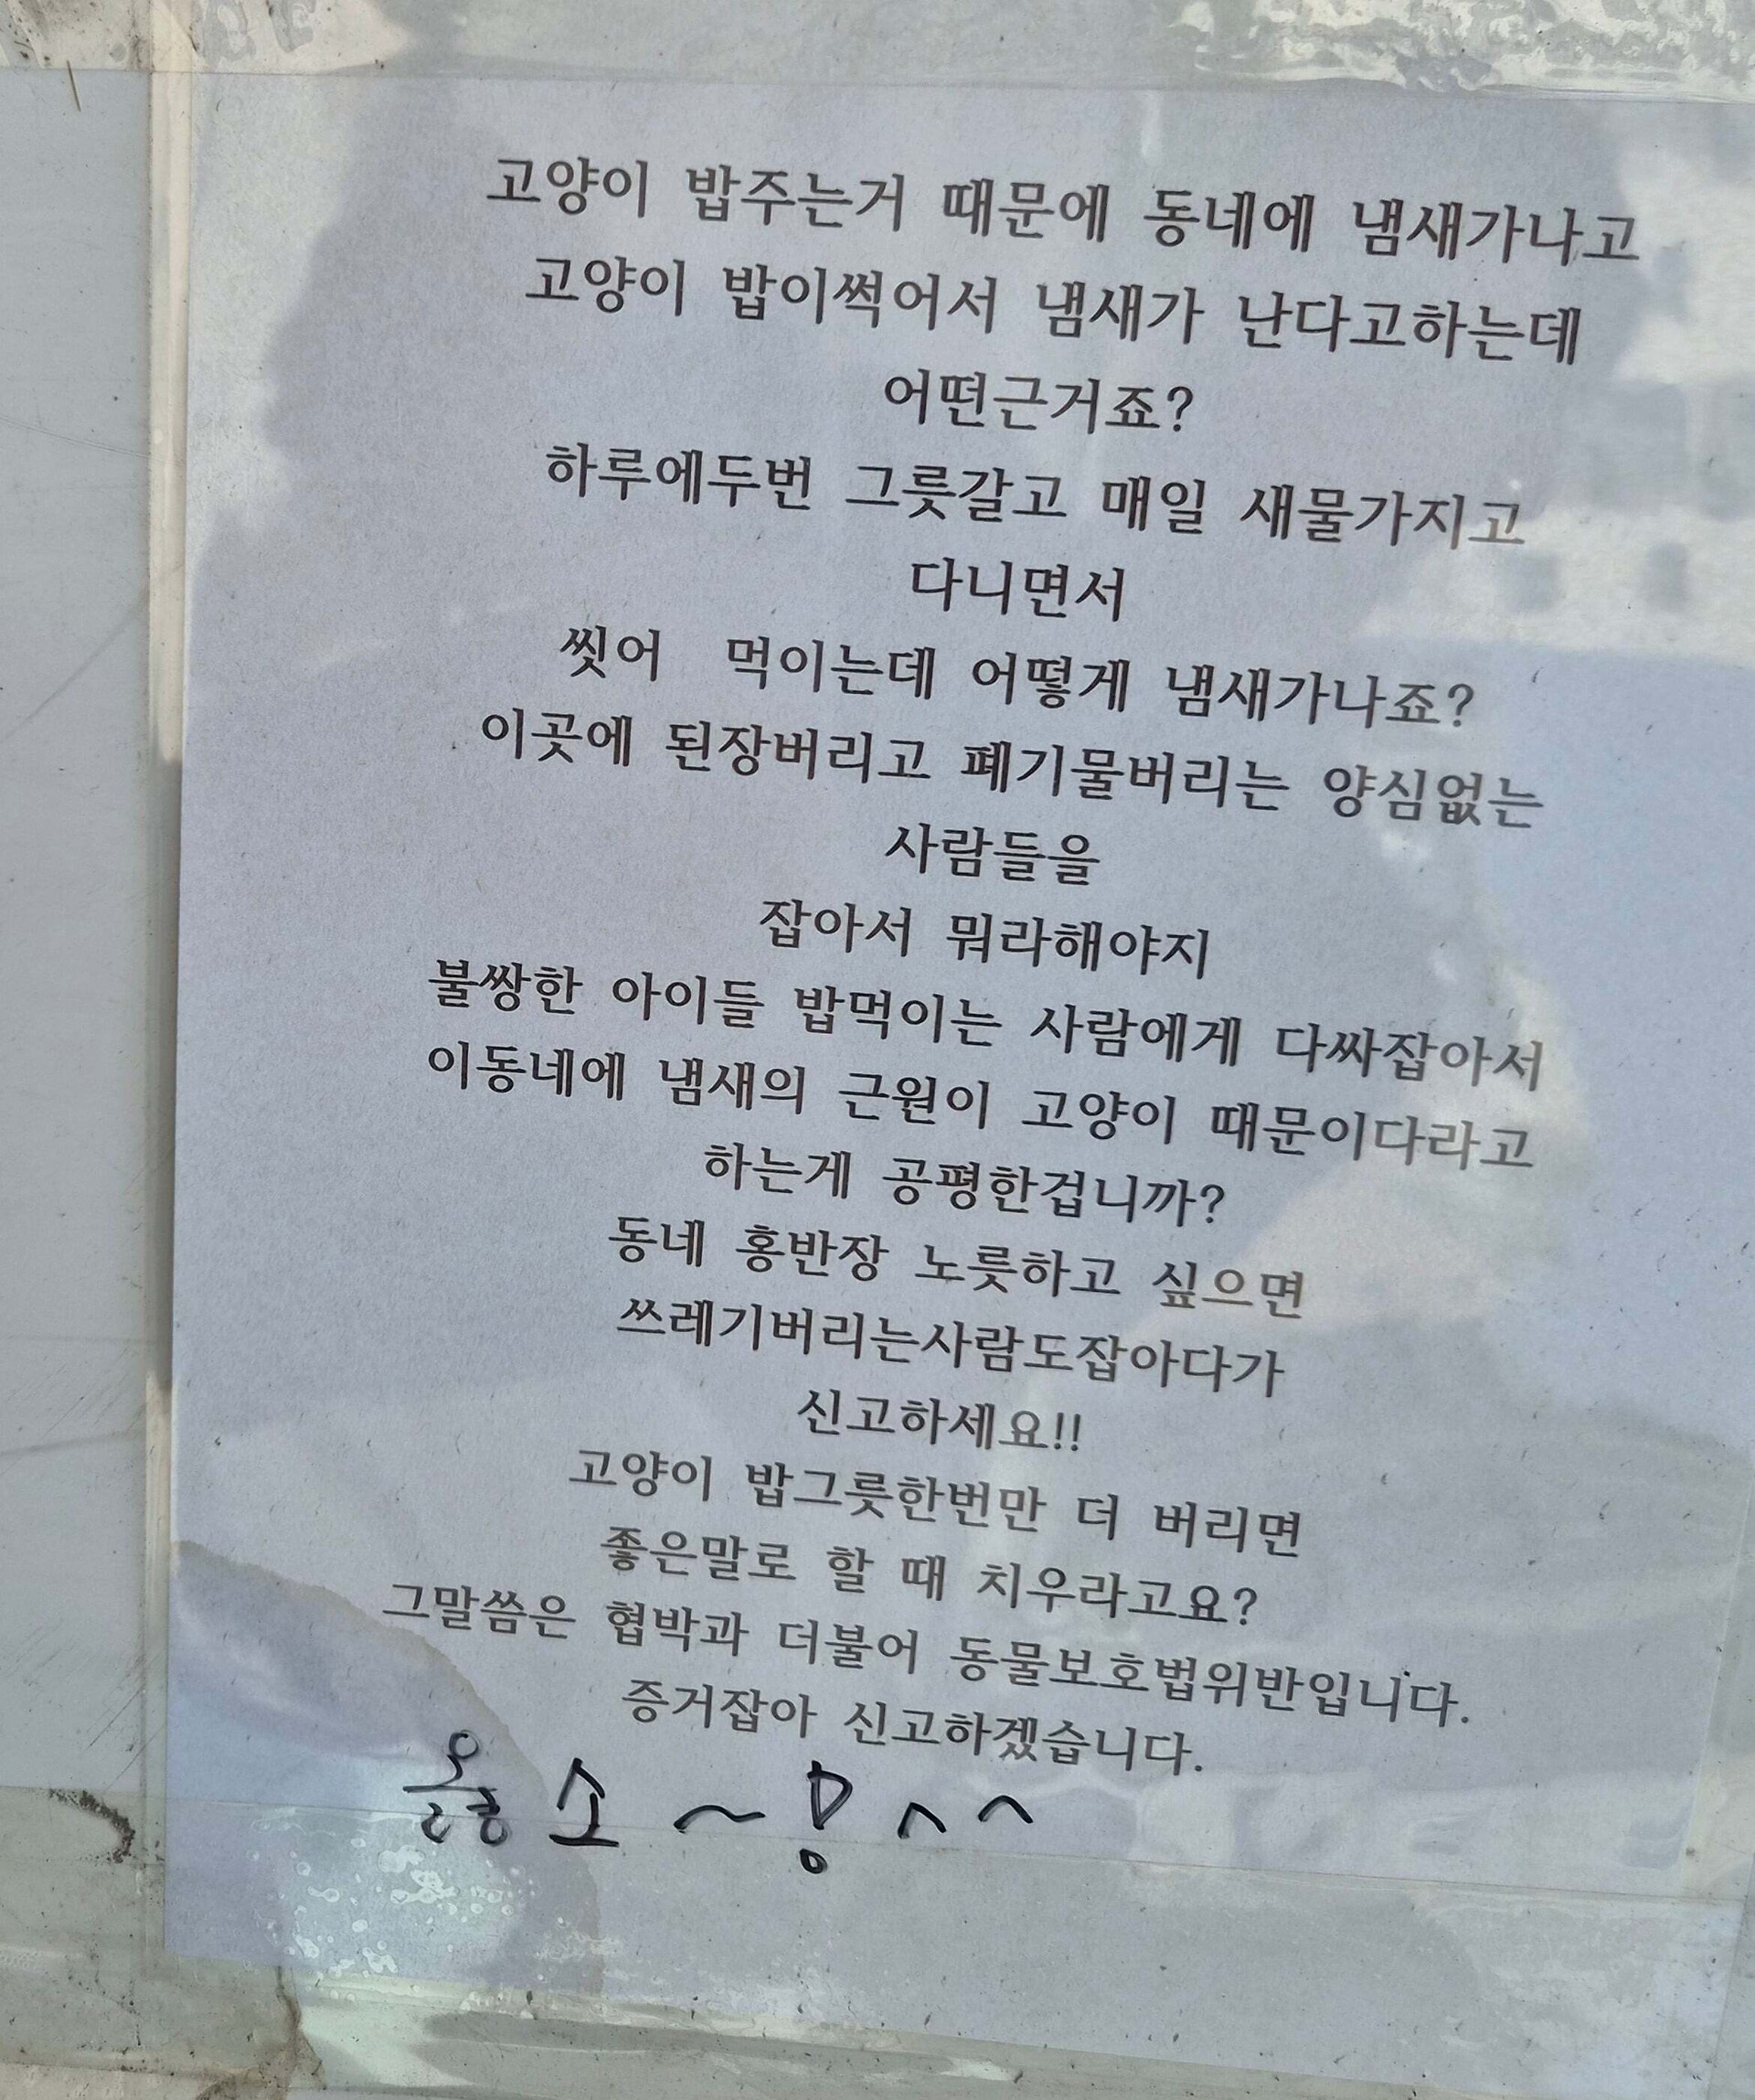 고양이 밥주는거 때문에 동네에 냄새가나고
고양이 밥이썩어서 냄새가 난다고하는데
어떤근거죠?
하루에두번 그릇갈고 매일 새물가지고
다니면서
씻어 먹이는데 어떻게 냄새가나죠?
이곳에 된장버리고 폐기물버리는 양심없는
사람들을
잡아서 뭐라해야지
불쌍한 아이들 밥먹이는 사람에게 다싸잡아서
이동네에 냄새의 근원이 고양이 때문이다라고
하는게 공평한겁니까?
동네 홍반장 노릇하고 싶으면
쓰레기버리는사람도잡아다가
신고하세요!!
고양이 밥그릇한번만 더 버리면
좋은말로 할 때 치우라고요?
그말씀은 협박과 더불어 동물보호법위반입니다.
증거잡아 신고하겠습니다.
옳소~! ^^